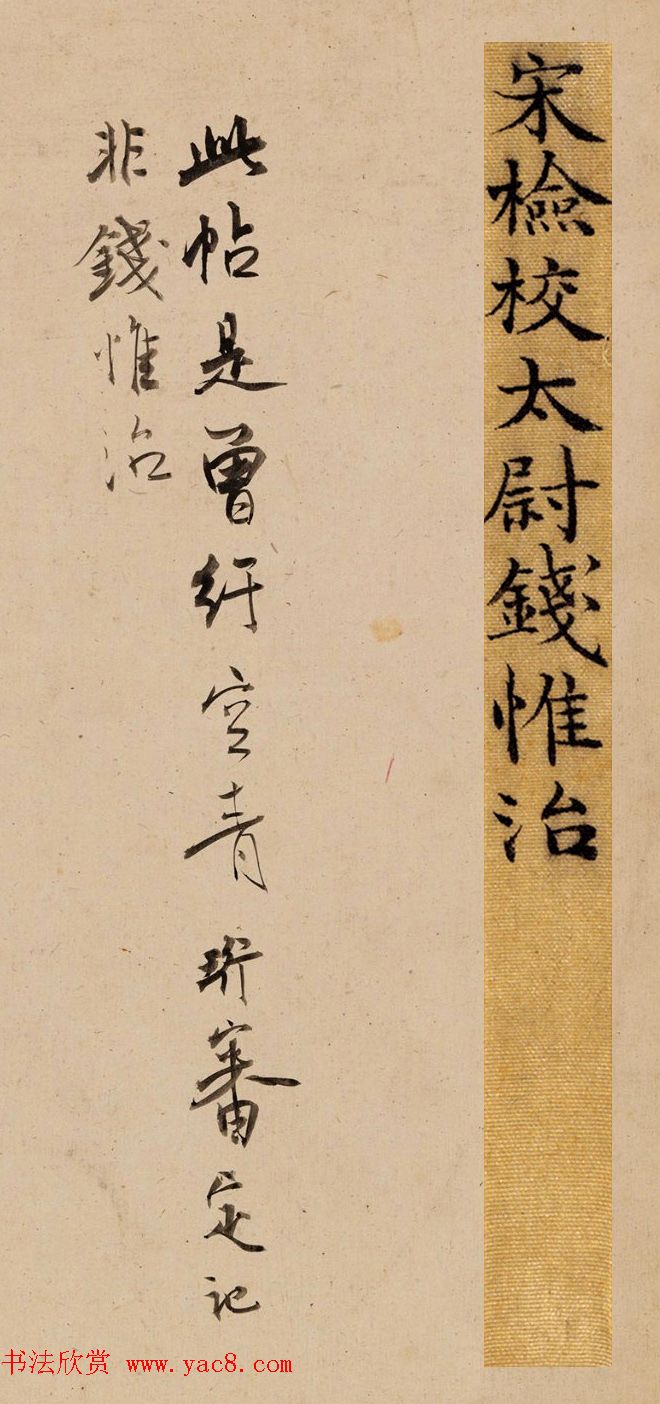 宋檢校太尉錢惟治
此帖是曾紆空青 珩審定記
非錢惟治
书法欣赏 www.yac8.com